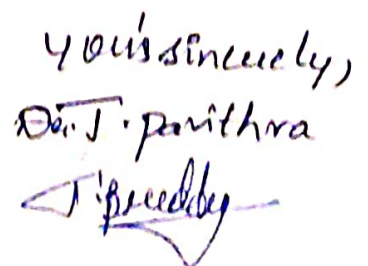 yours sincerely,
Dr. J. pavithra
J. Breddy